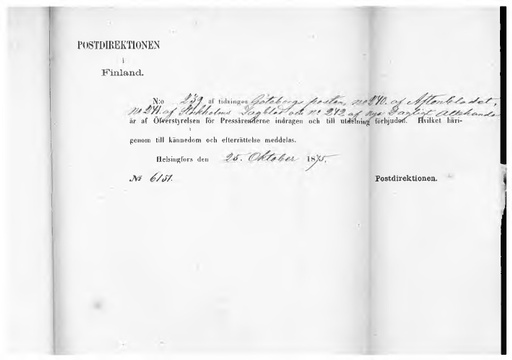 POSTDIREKTIONEN
i
Finland.
N:o 239 af tidningen Göteborgs posten, no 240. af Aftonbladet,
no 241 af Stockholms Dagblad och no 242 af nya Dagligt Allehanda
är af Öfverstyrelsen för Pressärenderne indragen och till utdelning förbjuden. Hvilket här-
igenom till kännedom och efterrättelse meddelas.
Helsingfors den 25. Oktober 1875.
No 6151.
Postdirektionen.